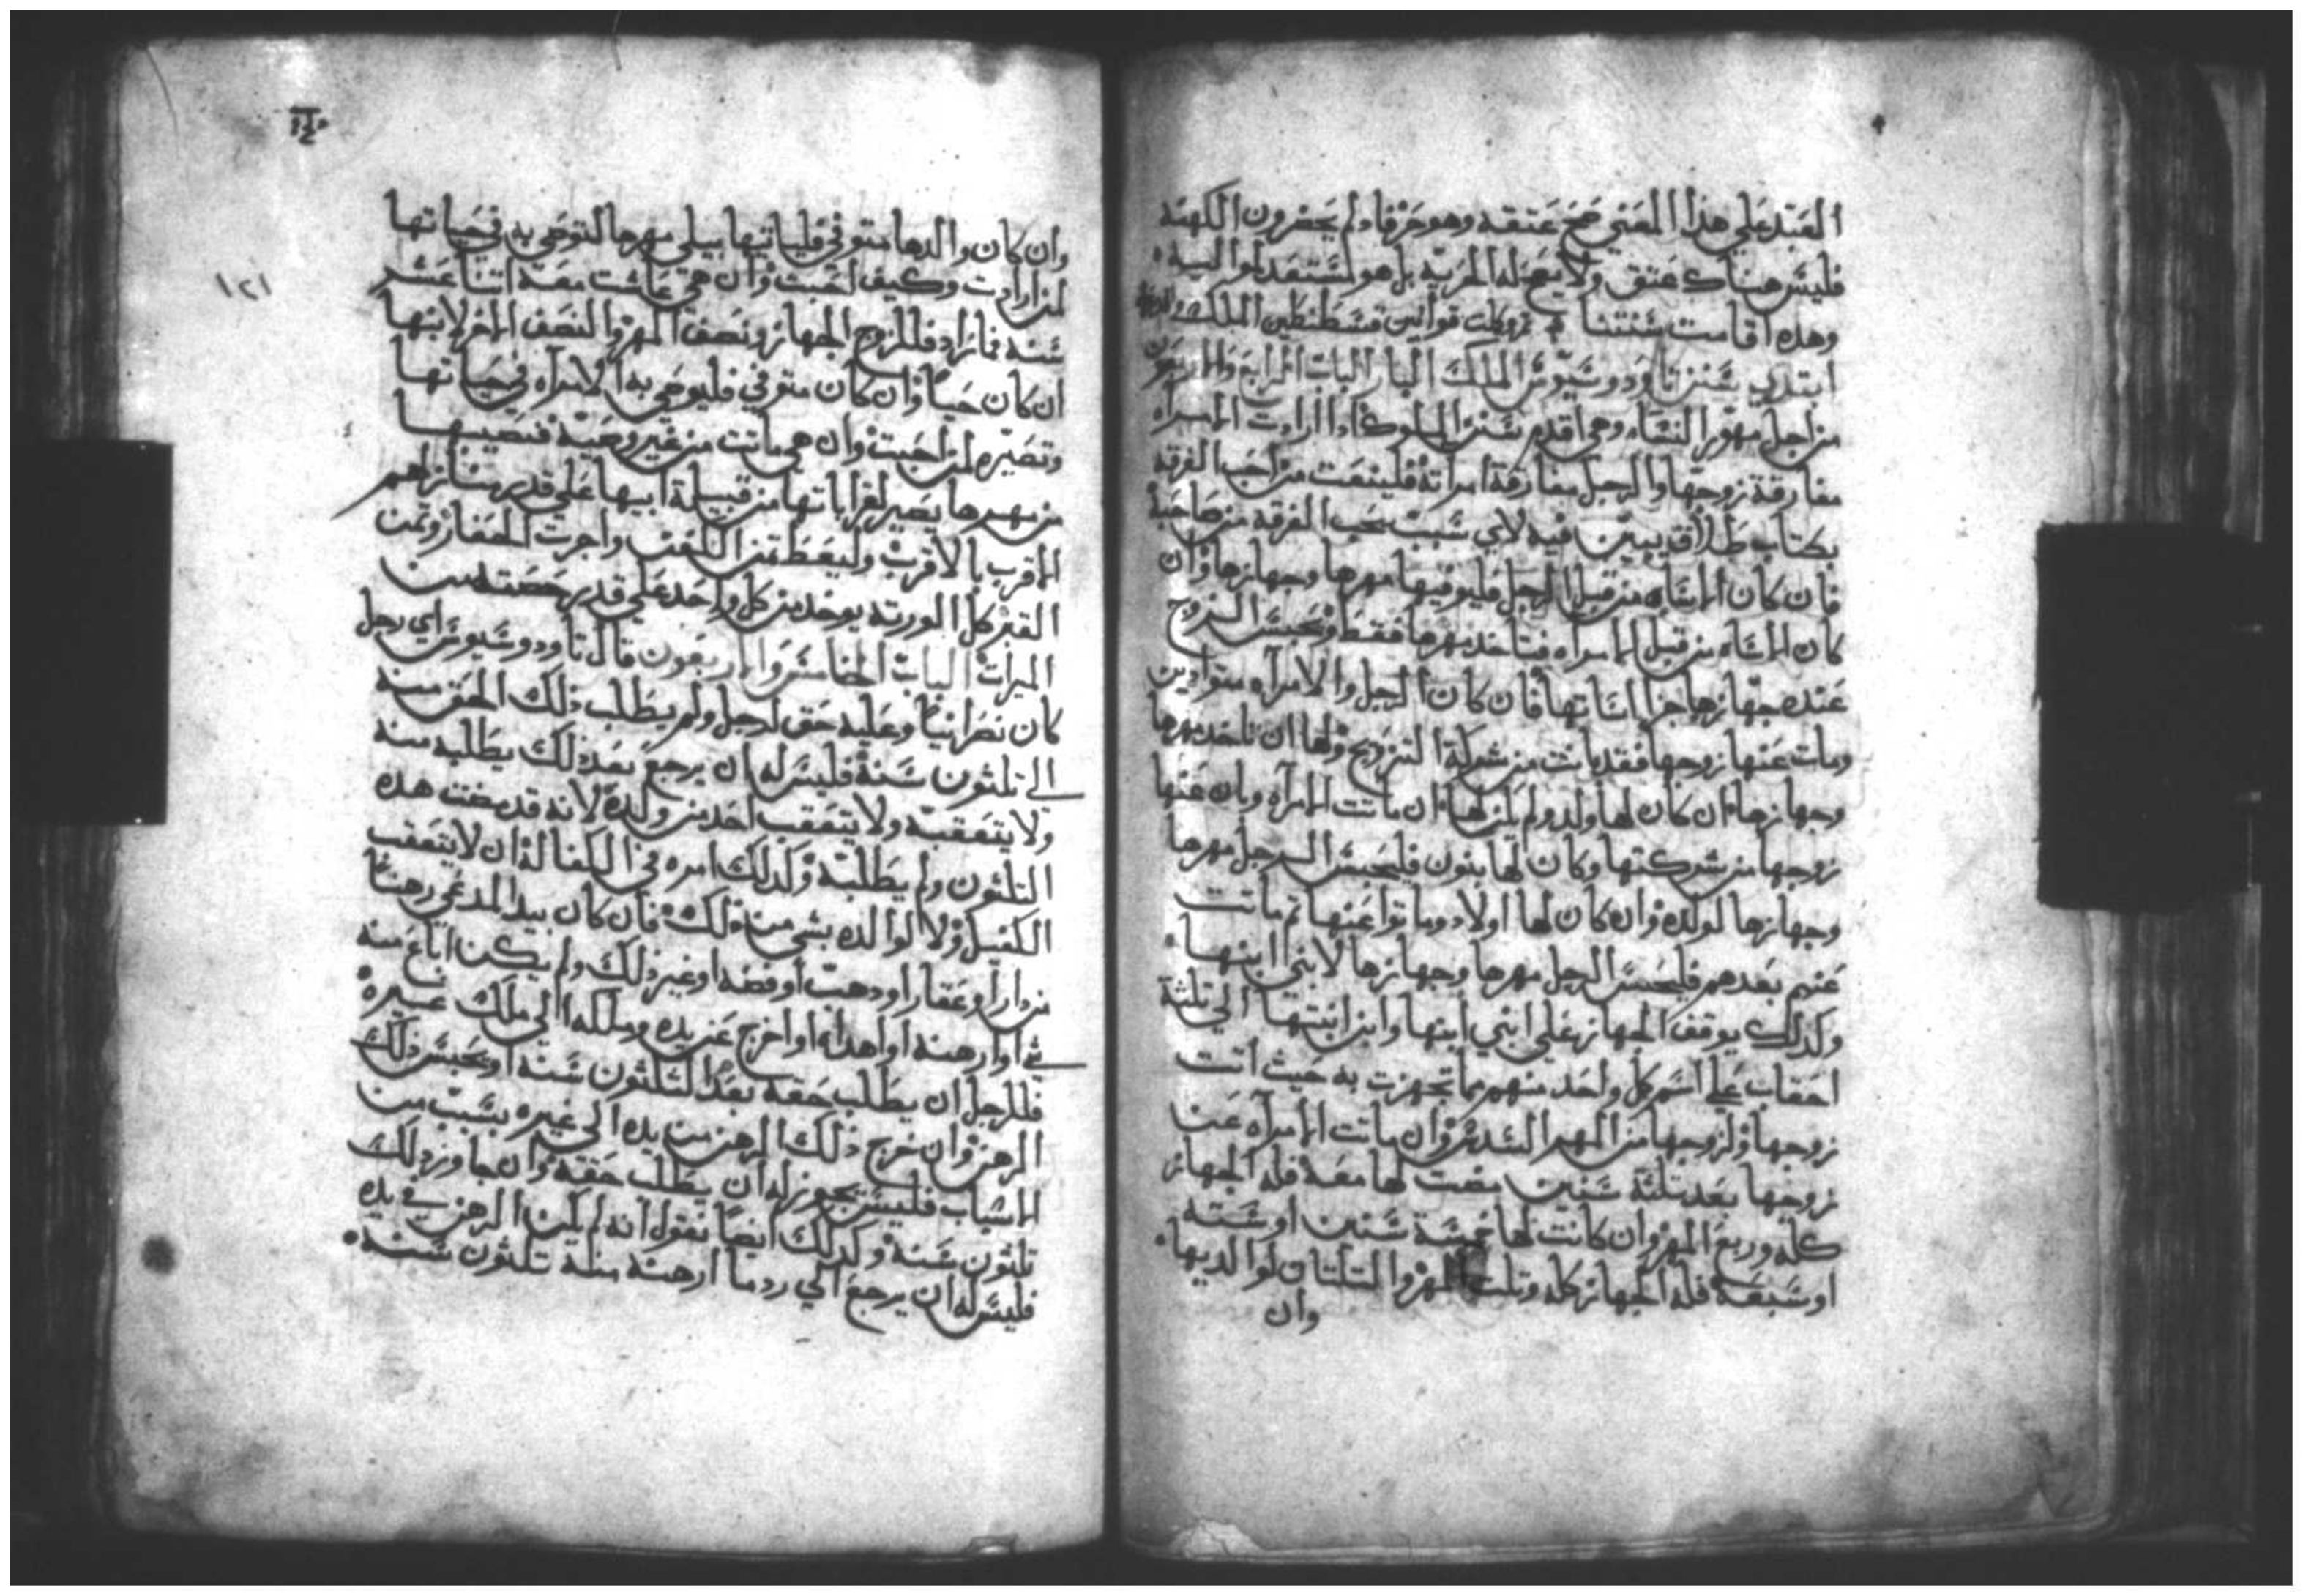 العبد علي هذا المعني صح عتقه وهو حر فاذ لم يحضرون الكهنه
فليس هناك عتق ولا يصح له الحريه بل هو لستعد لمواليه
وهذه اقامت سنتنا تم وكملت قوانين قسطنطين الملك
ابتدي سنن تاودوسيوس الملك البار الباب الرابع والاربعون
من اجل مهور النساء وهي اقدم سنن الملوك اذا ارادت الامراه
مفارقة زوجها والرجل مفارقة امراتة فلينعت من احب الفرقه
بكتاب طلاق يبين فيه لاي سبب يحب الفرقه من صاحبة
فان كان الاساه من قبل الرجل فليوفيها مهرها وجهازها وان
كان الاساه من قبل الامراه فتاخد مهرها فقط ويحبس الزوج
عنده جهازها جزا اساتها فان كان الرجل والامراه متوادين
ومات عنها زوجها فقد بانت من شركة التزويج ولها ان تاخد مهرها
وجهازها ان كان لها ولد ولم لم لها ان ماتت الامراه وبان عنها
زوجها من شركتها وكان لها بنون فليحبس الرجل مهرها
وجهازها لولده وان كان لها اولاد وماتوا عنها تم ماتت
عنهم بعدهم فليحبس الرجل مهرها وجهازها لابني ابنها
وكدلك يوقف الجهاز علي ابني ابنها وابن ابنتها الي تلتة
احقاب علي اسم كل واحد منهم مما تجهزت به حيث اتت
زوجها ولزوجها من المهر السدس وان ماتت الامراه عن
زوجها بعد تلتة سنين مضت لها معه فله الجهاز
كله وربع المهر وان كانت لها خمسة سنين او ستة
او سبعة فله الجهاز كله وتلت المهر والتلتان لوالديها
وان
١٢١
وان كان والدها متوفي قلياتيها بيلي مهرها لتوصي به في حياتها
لمن ارادت وكيف احبت وان هي عاشت معه اتنا عشر
سنه فما زاد فللزوج الجهاز ونصف المهر والنصف الاخر لابنها
ان كان حيا وان كان متوفي فليوصي به الامراه في حياتها
وتصيره لمن احبت وان هي ماتت من غير وصية فنصيبها
من مهرها يصير لقراباتها من قبيلة ابيها علي قدر منازلهم
الاقرب بالاقرب وليعط تمن الكفن واجرت الحفار وتمن
القبر كل الورته يوخد من كل واحد علي قدر حصته من
الميرات الباب الخامس والاربعون قال تاودوسيوس اي رجل
كان نصرانيا وعليه حق لرجل ولم يطلب ذلك الحق منه
الي تلتون سنة فليس له ان يرجع بعد ذلك يطلبه منه
ولا يتعقبه ولا يتعقب احد من ولده لانه قد مضت هده
التلتون ولم يطلبه وكدلك امره في الكفالة ان لا يتعقب
الكفيل ولا لوالده بشي من ذلك فان كان بيد المدعي رهنا
من دار او عقار او دهب او فضه او غير ذلك ولم يكن اباع منه
شي او ارهنه او اهداه او اخرج عن يده وملكه الي ملك غيره
فللرجل ان يطلب حقه بعد التلتون سنة او يحبس ذلك
الرهن وان خرج ذلك الرهن من يده الي غيره بسبب من
الاسباب فليس يجوز له ان يطلب حقه وان جاوز ذلك
تلتون سنة وكدلك ايضا نقول انه لم يكن الرهن في يده
فليس له ان يرجع الي رد ما ارهنه منه تلتون سنة